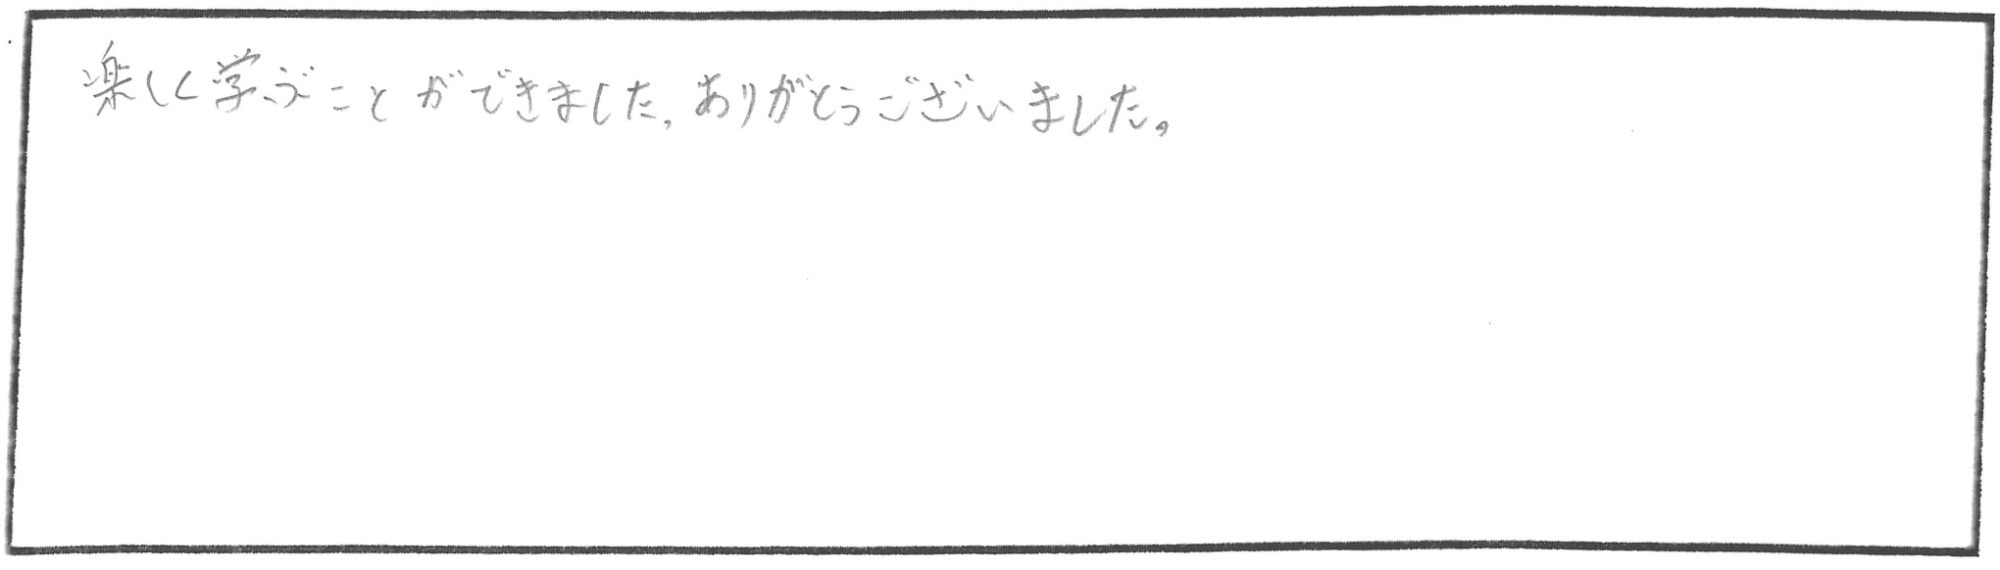 楽しく学ぶことができました。ありがとうございました。